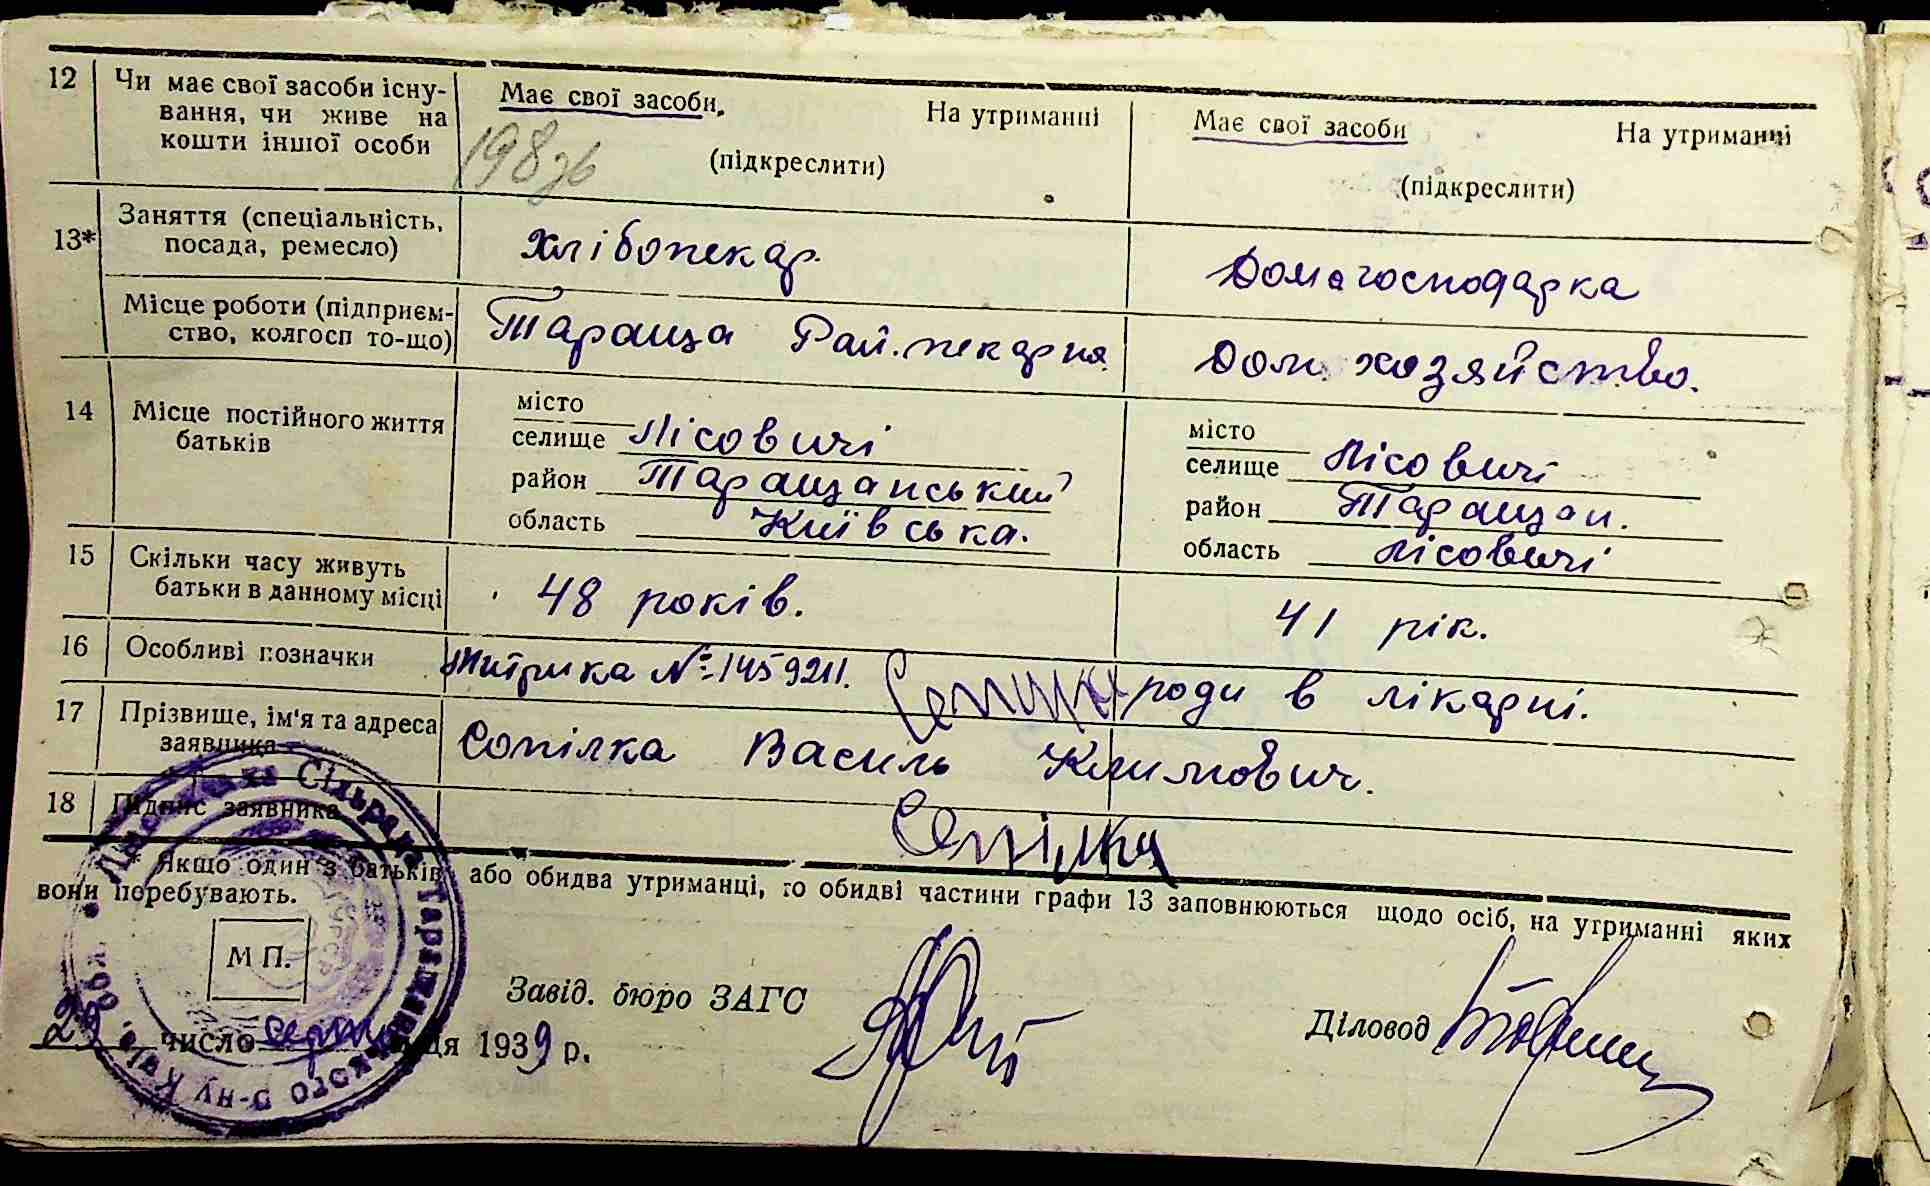 12 Чи має свої засоби існу-
вання, чи живе на
кошти іншої особи
Має свої засоби. На утриманні
(підкреслити)
198 зв
Має свої засоби На утриманні
(підкреслити)
13* Заняття (спеціальність,
посада, ремесло)
хлібопекар.
Домагосподарка
Місце роботи (підприєм-
ство, колгосп то-що)
Тараща Рай. пекарня
Дом. хозяйство.
14 Місце постійного життя
батьків
місто
селище Лісовичі
район Таращанський
область Київська.
місто
селище Лісовичі
район Таращан.
область Лісовичі
15 Скільки часу живуть
батьки в данному місці
48 років.
41 рік.
16 Особливі позначки
Митрика № 1459211. роди в лікарні.
17 Прізвище, ім'я та адреса
заявника
Сопілка Василь Климович.
18 Підпис заявника
Сопілка
* Якщо один з батьків або обидва утриманці, то обидві частини графи 13 заповнюються щодо осіб, на утриманні яких
вони перебувають.
М П.
Завід. бюро ЗАГС
Діловод
число 1939 р.
Сільрада Таращанського Р-ну Київ. обл.